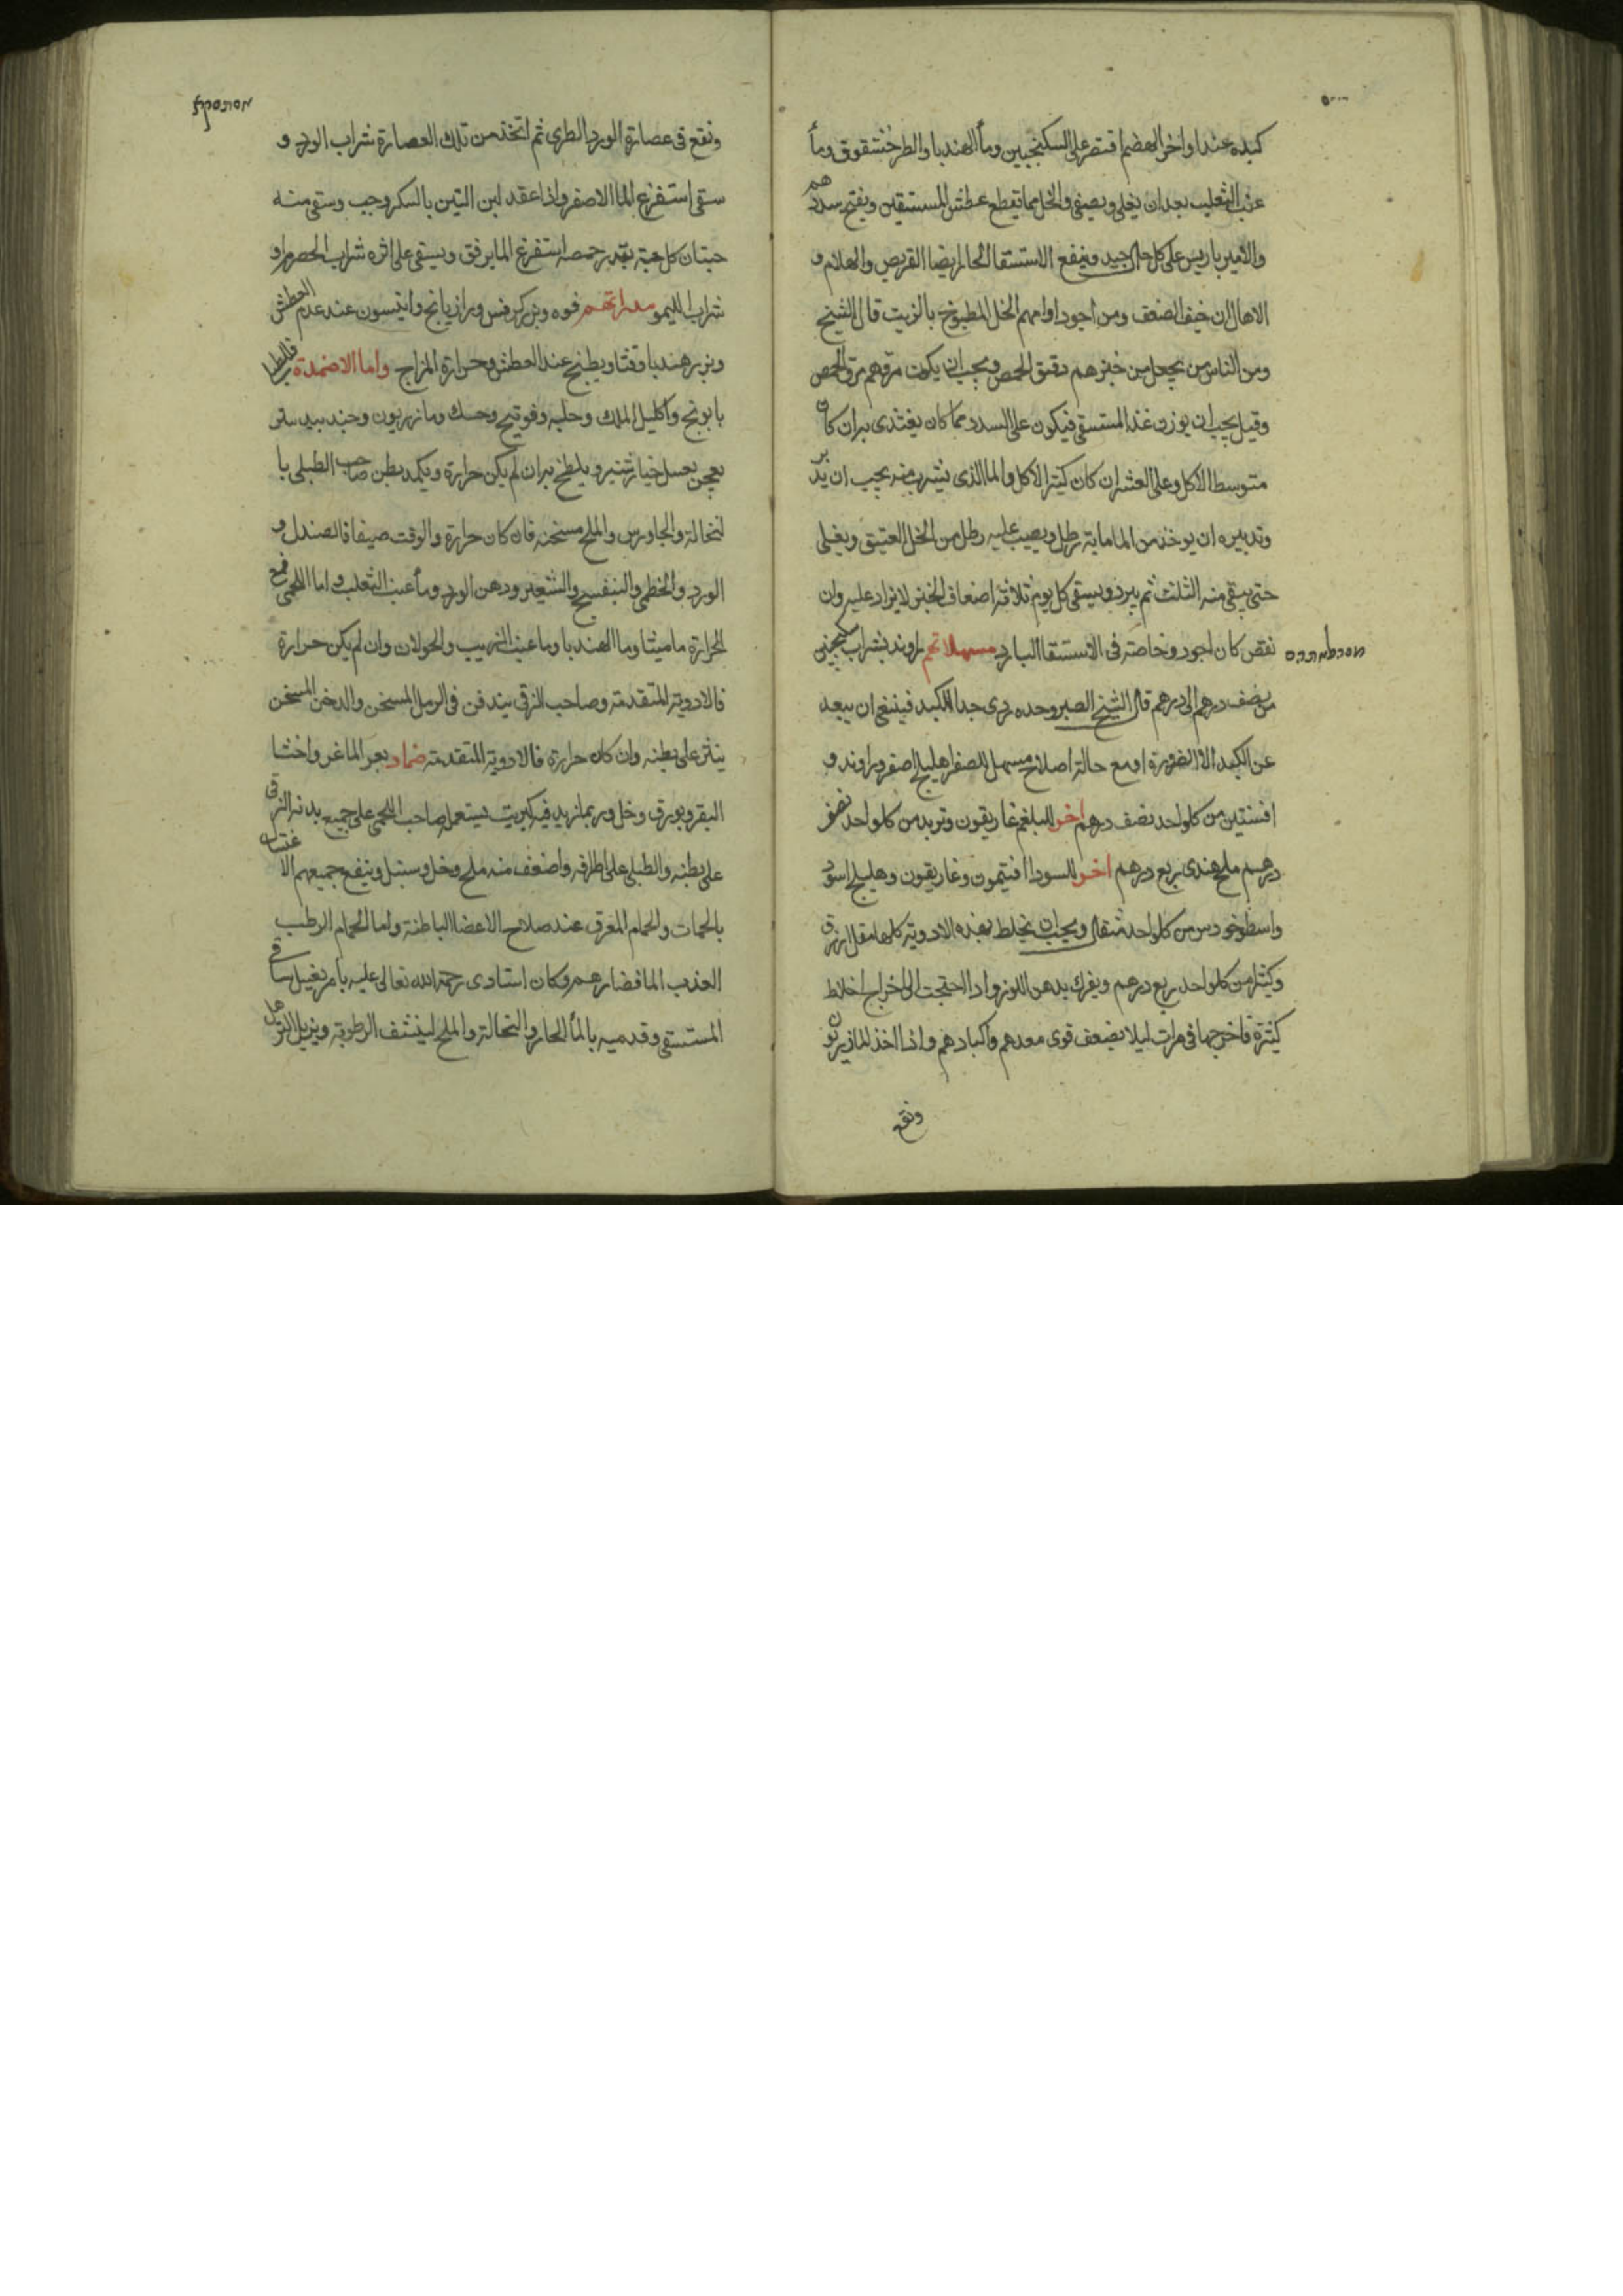 كبده عندا واخر الهضم اقتصر على السكنجبين وماء الهندبا والطرخشقوق وماء
عنب الثعلب بعد ان يغلى ويصفى والخل مما يقطع عطش المستسقين ويفتح سددهم
والامير باريس على كل حال جيد وينفع الاستسقا الحار ايضا القريص والهلام و
الاهال ان خيف الضعف ومن اجود ادامهم الخل المطبوخ بالزيت قال الشيخ
ومن الناس من يجعل من خبزهم دقيق الحمص ويجب ان يكون مرقهم مرق الحمص
وقيل يجب ان يوزن غذا المستسقى فيكون على السدد مما كان يغتدى به ان كان
متوسط الاكل وعلى العشر ان كان كثير الاكل والما الذى يشرب منه يجب ان يدبر
وتدبيره ان يوخذ من الما ماية رطل ويصب عليه رطل من الخل العتيق ويغلى
حتى يبقى منه الثلث ثم يبرد ويسقى كل يوم ثلاثة اضعاف الخبز لا يزاد عليه وان
نقص كان اجود وخاصة فى الاستسقا البارد مسهلاتهم راوند بشراب سكنجبين
من نصف درهم الى درهم قال الشيخ الصبر وحده ردى جدا للكبد فينبغى ان يبعد
عن الكبد الا لضرورة او مع حالة اصلاح مسهل للصفرا هليلج اصفر وراوند و
افسنتين من كل واحد نصف درهم اخر للبلغم غاريقون وتربد من كل واحد نصف
درهم ملح هندى ربع درهم اخر للسودا افتيمون وغاريقون وهليلج اسود
واسطوخودس من كل واحد مثقال ويجب ان يخلط بهذه الادوية كلها مقل ازرق
وكثيرا من كل واحد ربع درهم ويفرك بدهن اللوز واذا احتجت الى اخراج اخلاط
كثيرة فاخرجها فى مرات ليلا يضعف قوى معدهم واكبادهم واذا اخذ المازريون
ونقع
ونقع فى عصارة الورد الطرى ثم اتخذ من تلك العصارة شراب الورد و
سقى استفرغ الما الاصفر واذا عقد لبن التين بالسكر وحبب وسقى منه
حبتان كل حبة بقدر حمصه استفرغ الما برفق ويسقى على اثره شراب الحصرم او
شراب الليمو مدراتهم فوه وبزر كرفس ورازيانج وانيسون عند عدم العطش
وبزر هندبا وقثا وبطيخ عند العطش وحرارة المزاج واما الاضمدة
بابونج واكليل الملك وحلبه وفوتنج وحسك ومازريون وجندبيدستر
يعجن بعسل خيار شنبر ويلطخ به ان لم يكن حرارة ويكمد بطن صاحب الطبلى با
لنخالة والجاورس والملح مسخنه فان كان حرارة والوقت صيفا فالصندل و
الورد والخطمى والبنفسج والشعير ودهن الورد وماء عنب الثعلب واما اللحمى فمع
الحرارة ماميثا وما الهندبا وما عنب الزبيب والحولان وان لم يكن حرارة
فالادوية المتقدمة وصاحب الزقى يندفن فى الرمل المسخن والدخن المسخن
ينثر على بطنه وان كان حرارة فالادوية المتقدمة ضماد بعر الماعز واخثا
البقر وبورق وخل وربما زيد فيه كبريت يستعمل صاحب اللحمى على جميع بدنه الزقى
على بطنه والطبلى على اطرافه واضعف منه ملح وخل وسنبل وينفع جميعهم الاغتسال
بالحمات والحمام المعرق عند صلاح الاعضا الباطنة واما الحمام الرطب
العذب الما فضار لهم وكان استادى رحمة الله تعالى عليه يامر بغسل ساقى
المستسقى وقدميه بالماء الحار والنخالة والملح لينشف الرطوبة ويزيل الترهل